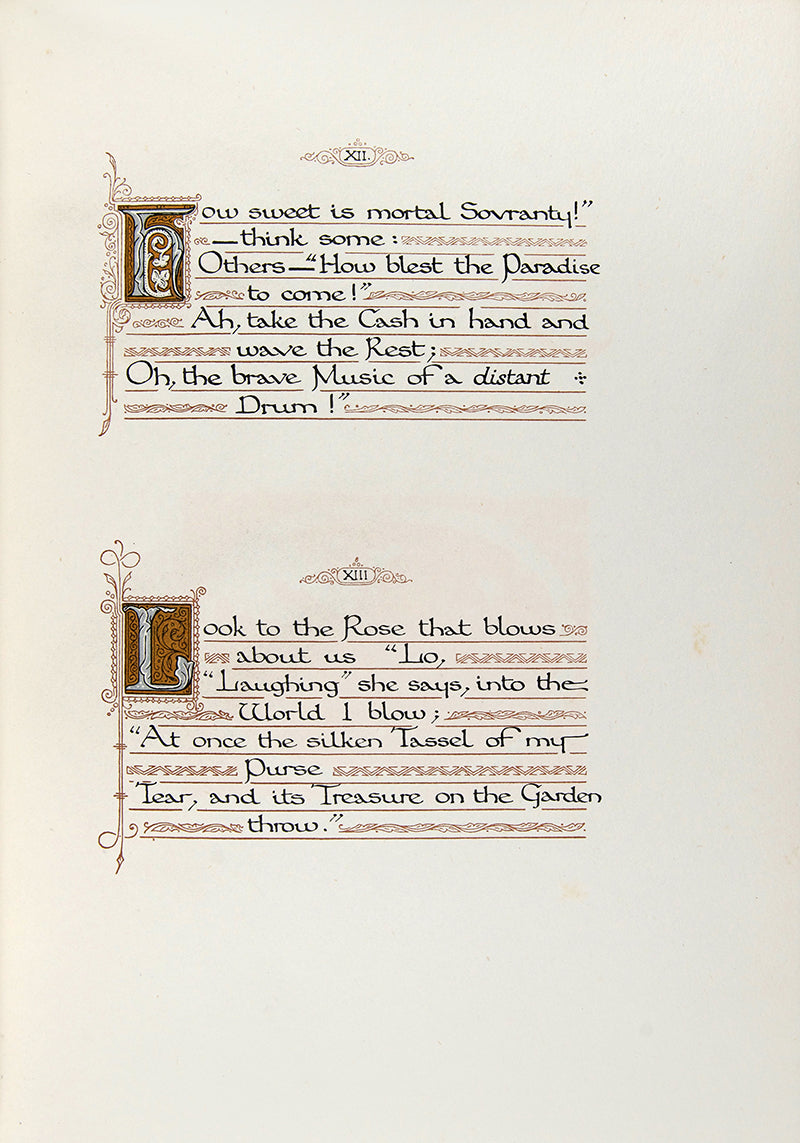 XII.
How sweet is mortal Sovranty!”
—think some :
Others—“How blest the Paradise
to come!”
Ah, take the Cash in hand and
wave the Rest;
Oh, the brave Music of a distant
Drum!”
XIII
Look to the Rose that blows
about us “Lo,
“Laughing” she says, into the
World I blow;
“At once the silken Tassel of my
Purse
Tear, and its Treasure on the Garden
throw.”